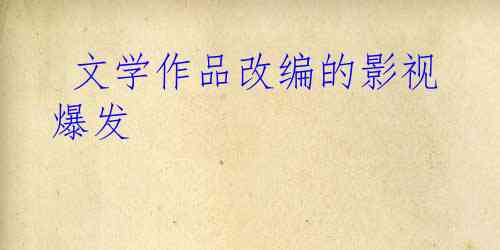 文学作品改编的影视
爆发